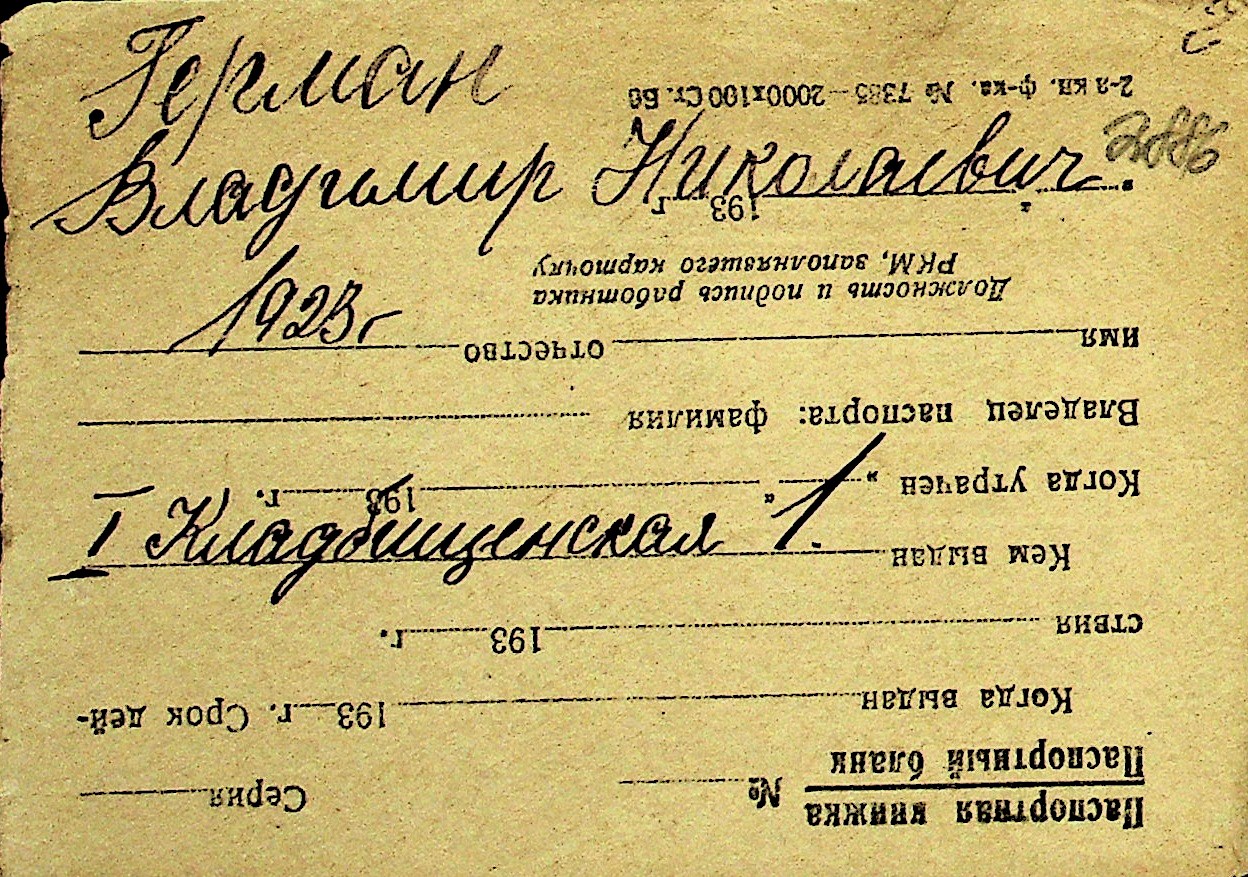 Герман
Владимир Николаевич
1923 г
I Кладбищенская 1.
Паспортная книжка
Паспортный бланк
№ Серия
Когда выдан 193 г. Срок дей-
ствия 193 г.
Кем выдан
Когда утрачен „ “ 193 г.
Владелец паспорта: фамилия
имя отчество
Должность и подпись работника
РКМ, заполнявшего карточку
„ “ 193 г.
2-я кп. ф-ка. № 7385—2000х100 Ст. Бб